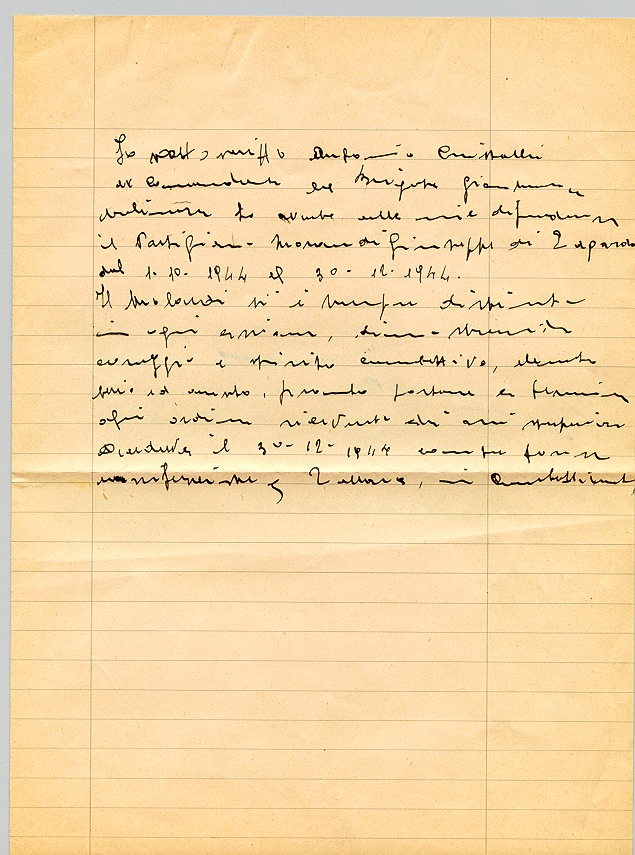 Io sottoscritto Antonio Cristalli
ex Comandante della Brigata
dichiara di avere alle mie dipendenze
il Partigiano Morandi Giuseppe di
dal 1-10-1944 al 30-12-1944.
Il Molardi si è sempre distinto
in ogni azione, dimostrando
coraggio e spirito combattivo, elemento
serio ed onesto, portare a termine
ogni ordine ricevuto dai suoi superiori
Cadde il 30-12-1944 contro forze
nazifasciste a in combattimento